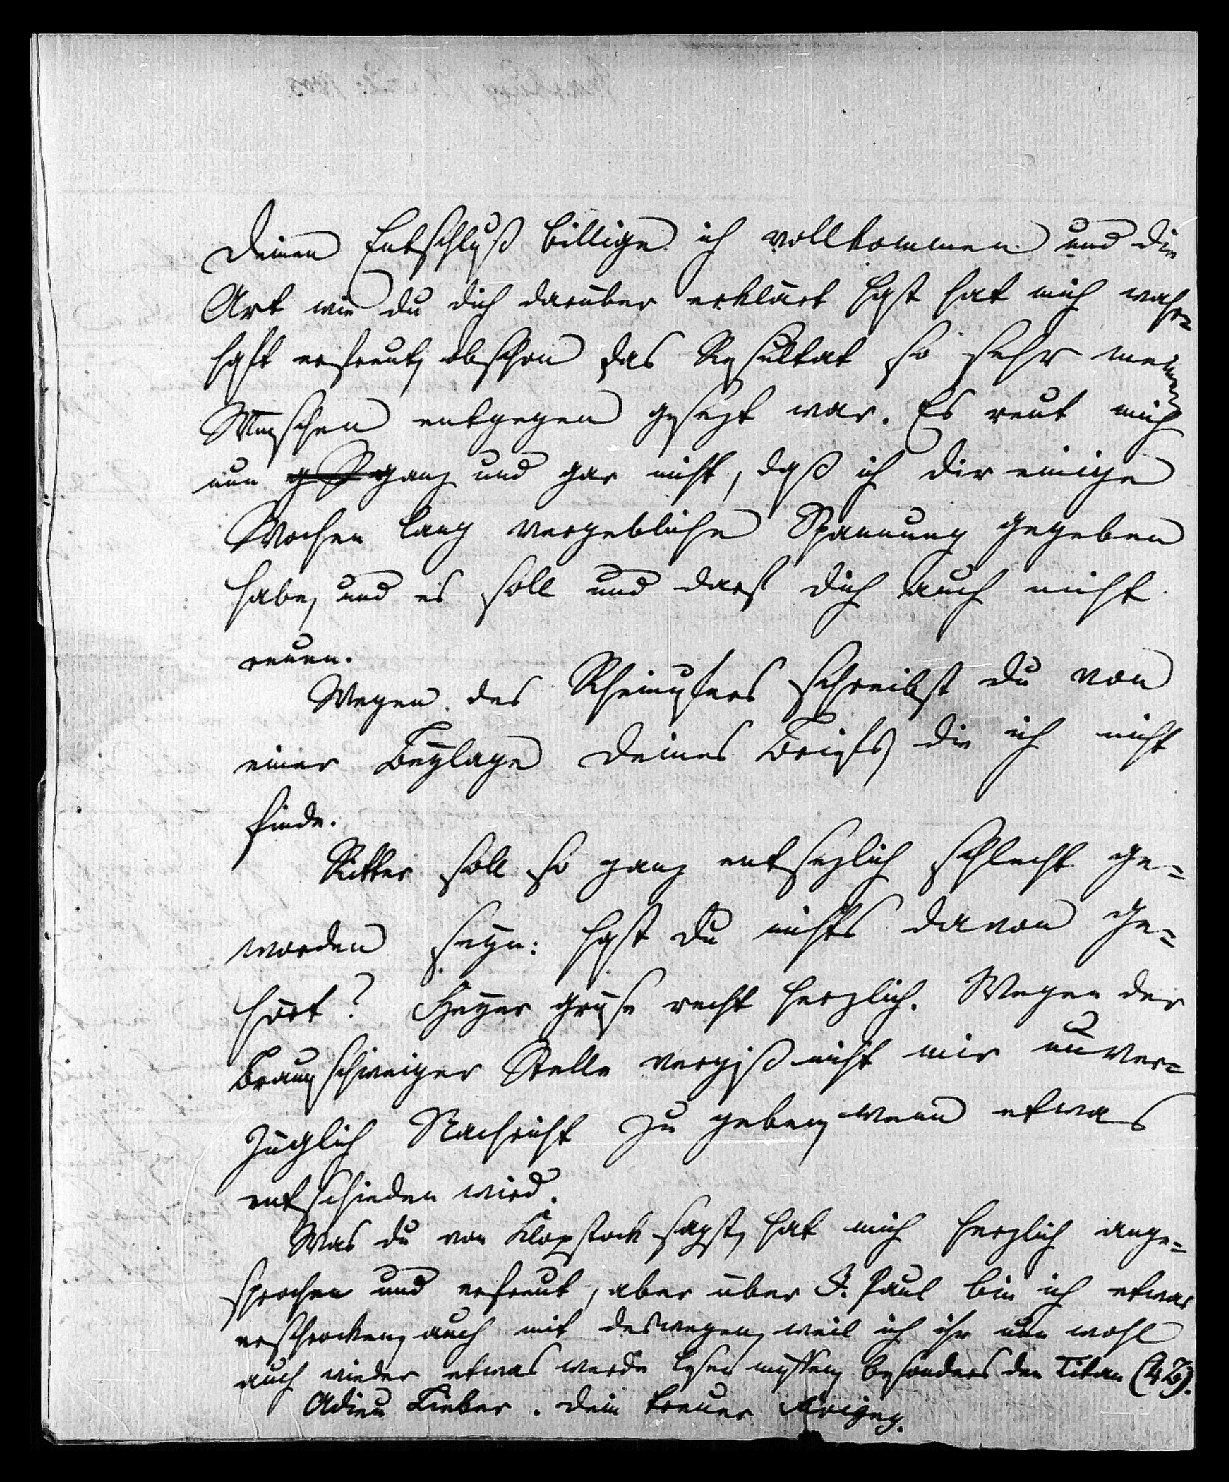 Deinen Entschluß billige ich vollkommen und die
Art wie du dich darüber erklärt hast hat mich wahr=
haft erfreut, obschon das Resultat so sehr meinen
Wünschen entgegen gesezt war. Es reut mich
nun ganz und gar nicht, daß ich dir einige
Wochen lang vergebliche Spannung gegeben
habe, und es soll und darf dich auch nicht
reuen.
Wegen des schreibst du von
einer Beylage deines Briefs, die ich nicht
finde.
Ritter soll so ganz entsezlich schlecht ge=
worden seyn: hast du nichts davon ge=
hört? grüße recht herzlich. Wegen der
Braunschweiger Stelle vergiß nicht mir unver=
züglich Nachricht zu geben, wenn etwas
entschieden wird.
Was du von Klopstock sagst, hat mich herzlich ange=
sprochen und erfreut, aber über J. Paul bin ich etwas
erschrocken, auch mit deswegen, weil ich ihn nun wohl
auch wieder etwas werde lesen müssen, besonders den Titan
Adieu Lieber. Dein treuer